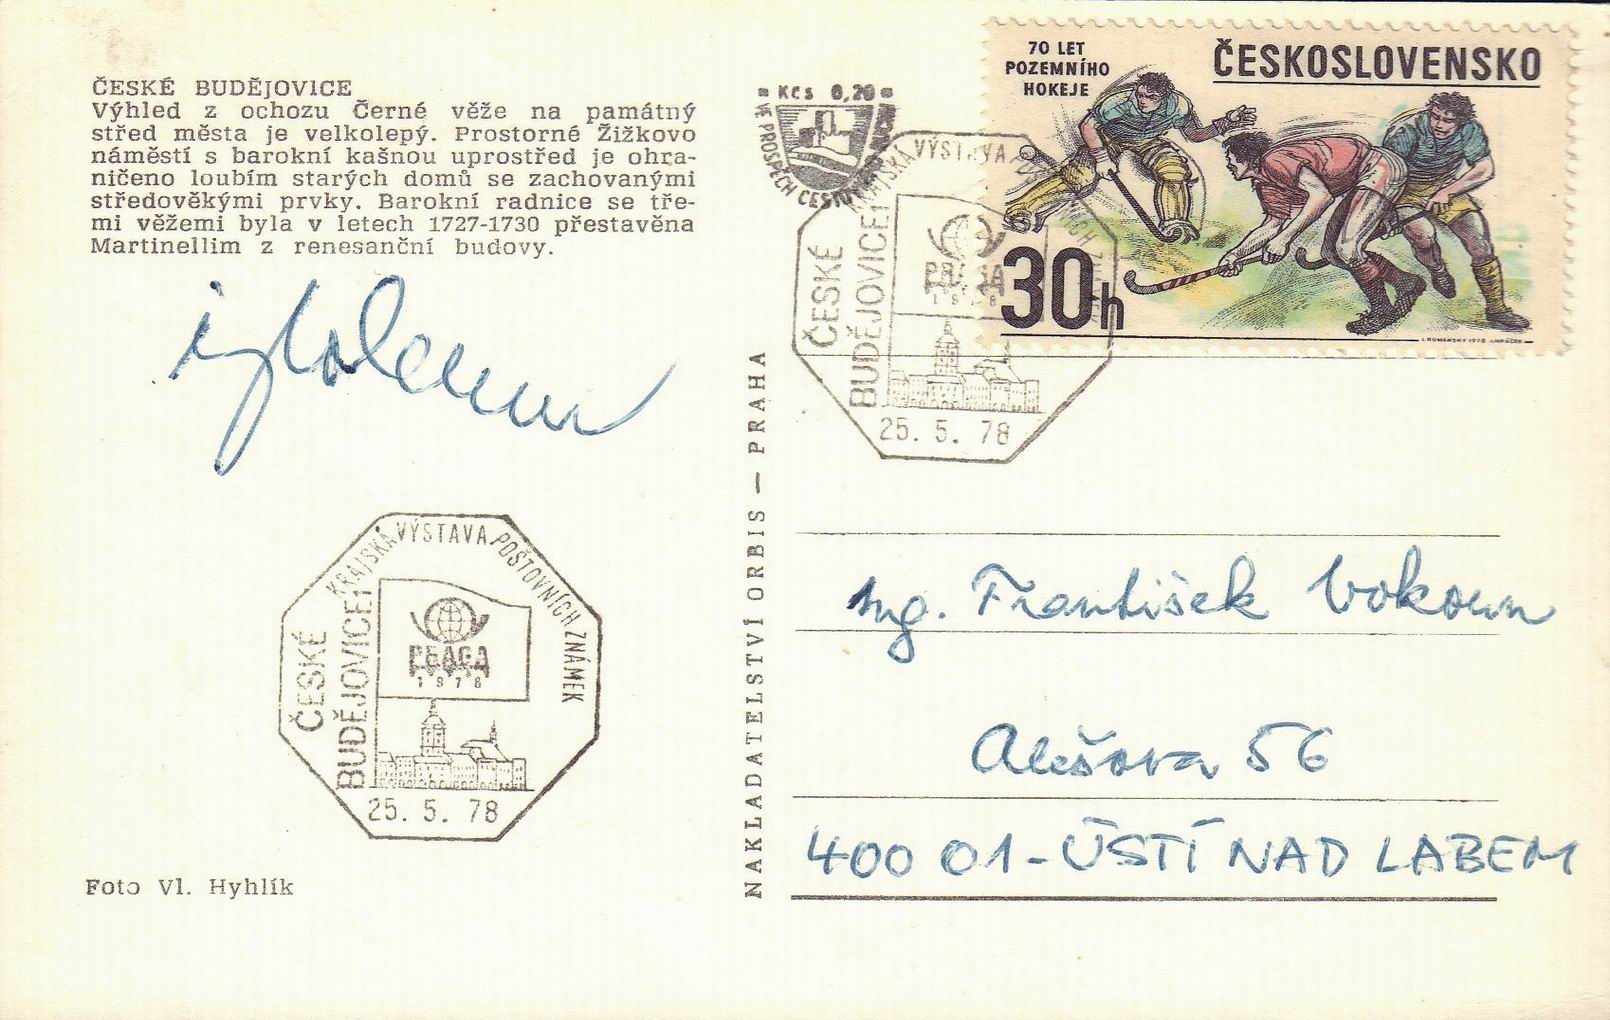 ČESKÉ BUDĚJOVICE
Výhled z ochozu Černé věže na památný
střed města je velkolepý. Prostorné Žižkovo
náměstí s barokní kašnou uprostřed je ohra-
ničeno loubím starých domů se zachovanými
středověkými prvky. Barokní radnice se tře-
mi věžemi byla v letech 1727-1730 přestavěna
Martinellim z renesanční budovy.
KRAJSKÁ VÝSTAVA POŠTOVNÍCH ZNÁMEK
ČESKÉ
BUDĚJOVICE 1
PRAGA
1978
25. 5. 78
Foto Vl. Hyhlík
NAKLADATELSTVÍ ORBIS — PRAHA
Kčs 0,20
VE PROSPĚCH
70 LET
POZEMNÍHO
HOKEJE
ČESKOSLOVENSKO
30h
I. RUMANSKÝ 1978
KRAJSKÁ VÝSTAVA
ČESKÉ
BUDĚJOVICE 1
PRAGA
1978
25. 5. 78
Ing. František Vokoun
Alešova 56
400 01 - ÚSTÍ NAD LABEM